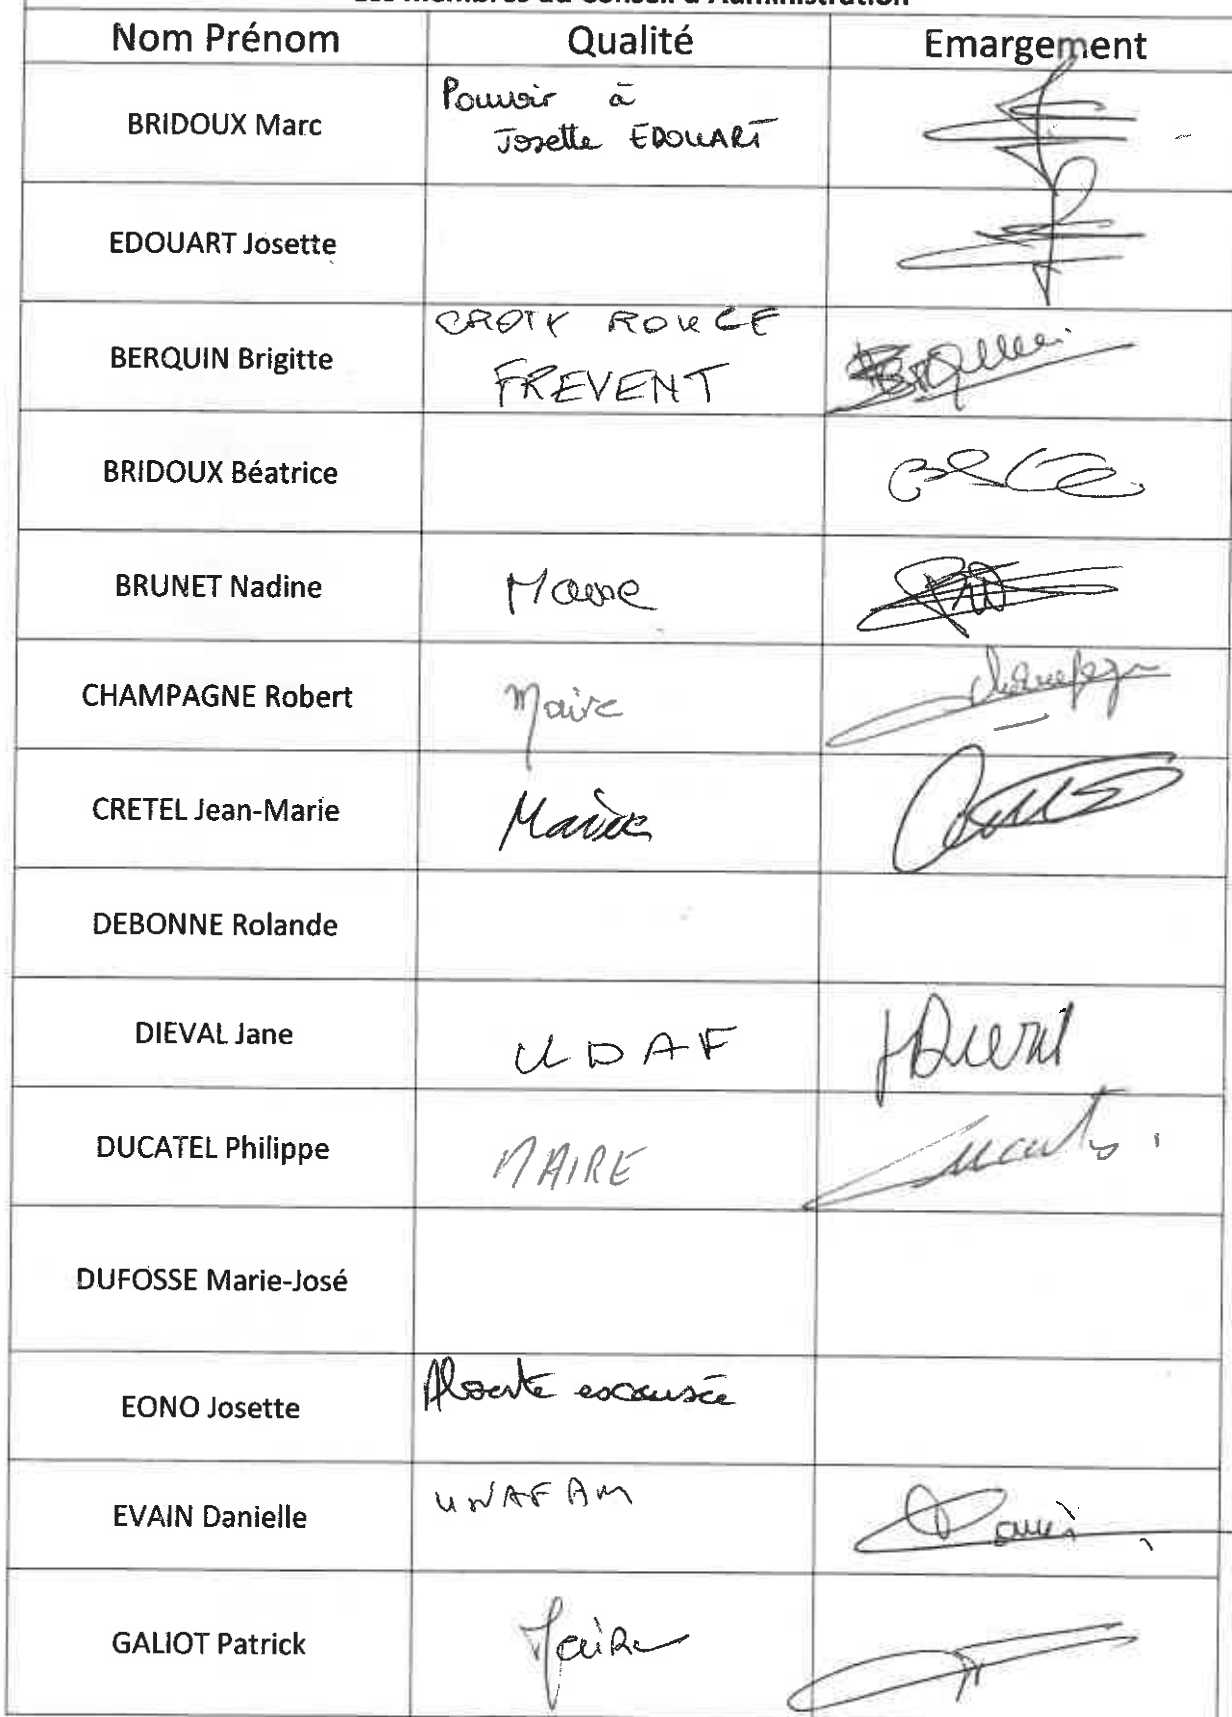 Les membres du Conseil d'Administration
Nom Prénom Qualité Emargement
BRIDOUX Marc Pouvoir à
Josette EDOUART
EDOUART Josette
BERQUIN Brigitte CROIX ROUGE
FREVENT
BRIDOUX Béatrice
BRUNET Nadine Maire
CHAMPAGNE Robert Maire
CRETEL Jean-Marie Maire
DEBONNE Rolande
DIEVAL Jane UDAF JDieval
DUCATEL Philippe MAIRE
DUFOSSE Marie-José
EONO Josette Absente excusée
EVAIN Danielle UNAFAM
GALIOT Patrick Maire